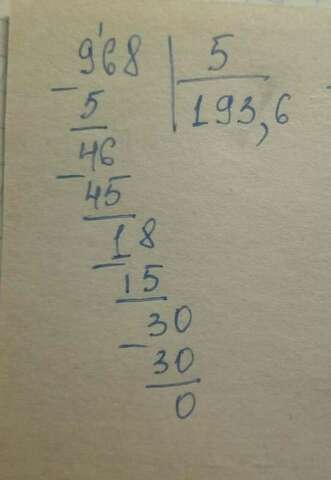 968 | 5
193,6
- 5
46
- 45
18
- 15
30
- 30
0